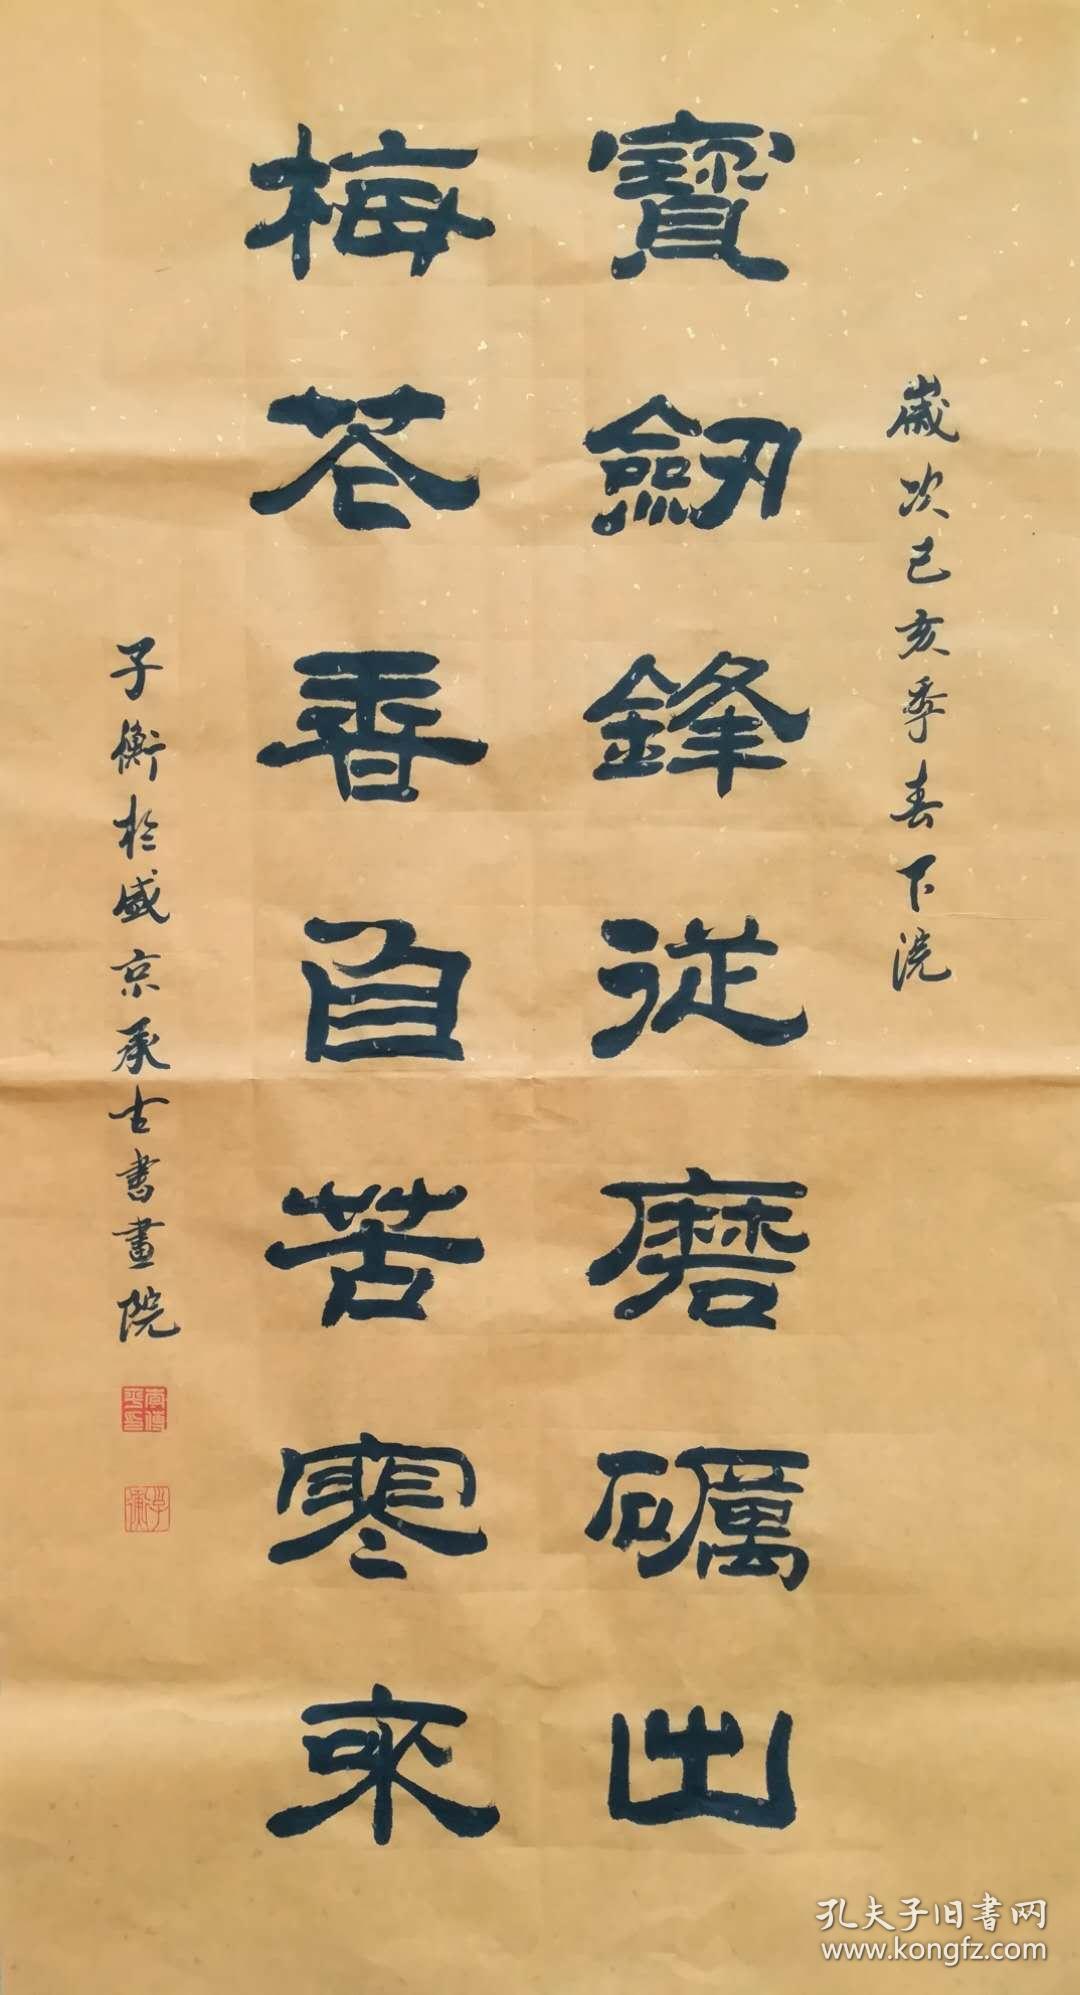 歲次己亥季春下浣
寶劔鋒從磨礪出
梅花香自苦寒來
子衡於盛京承古書畫院
子衡
孔夫子旧书网
www.kongfz.com